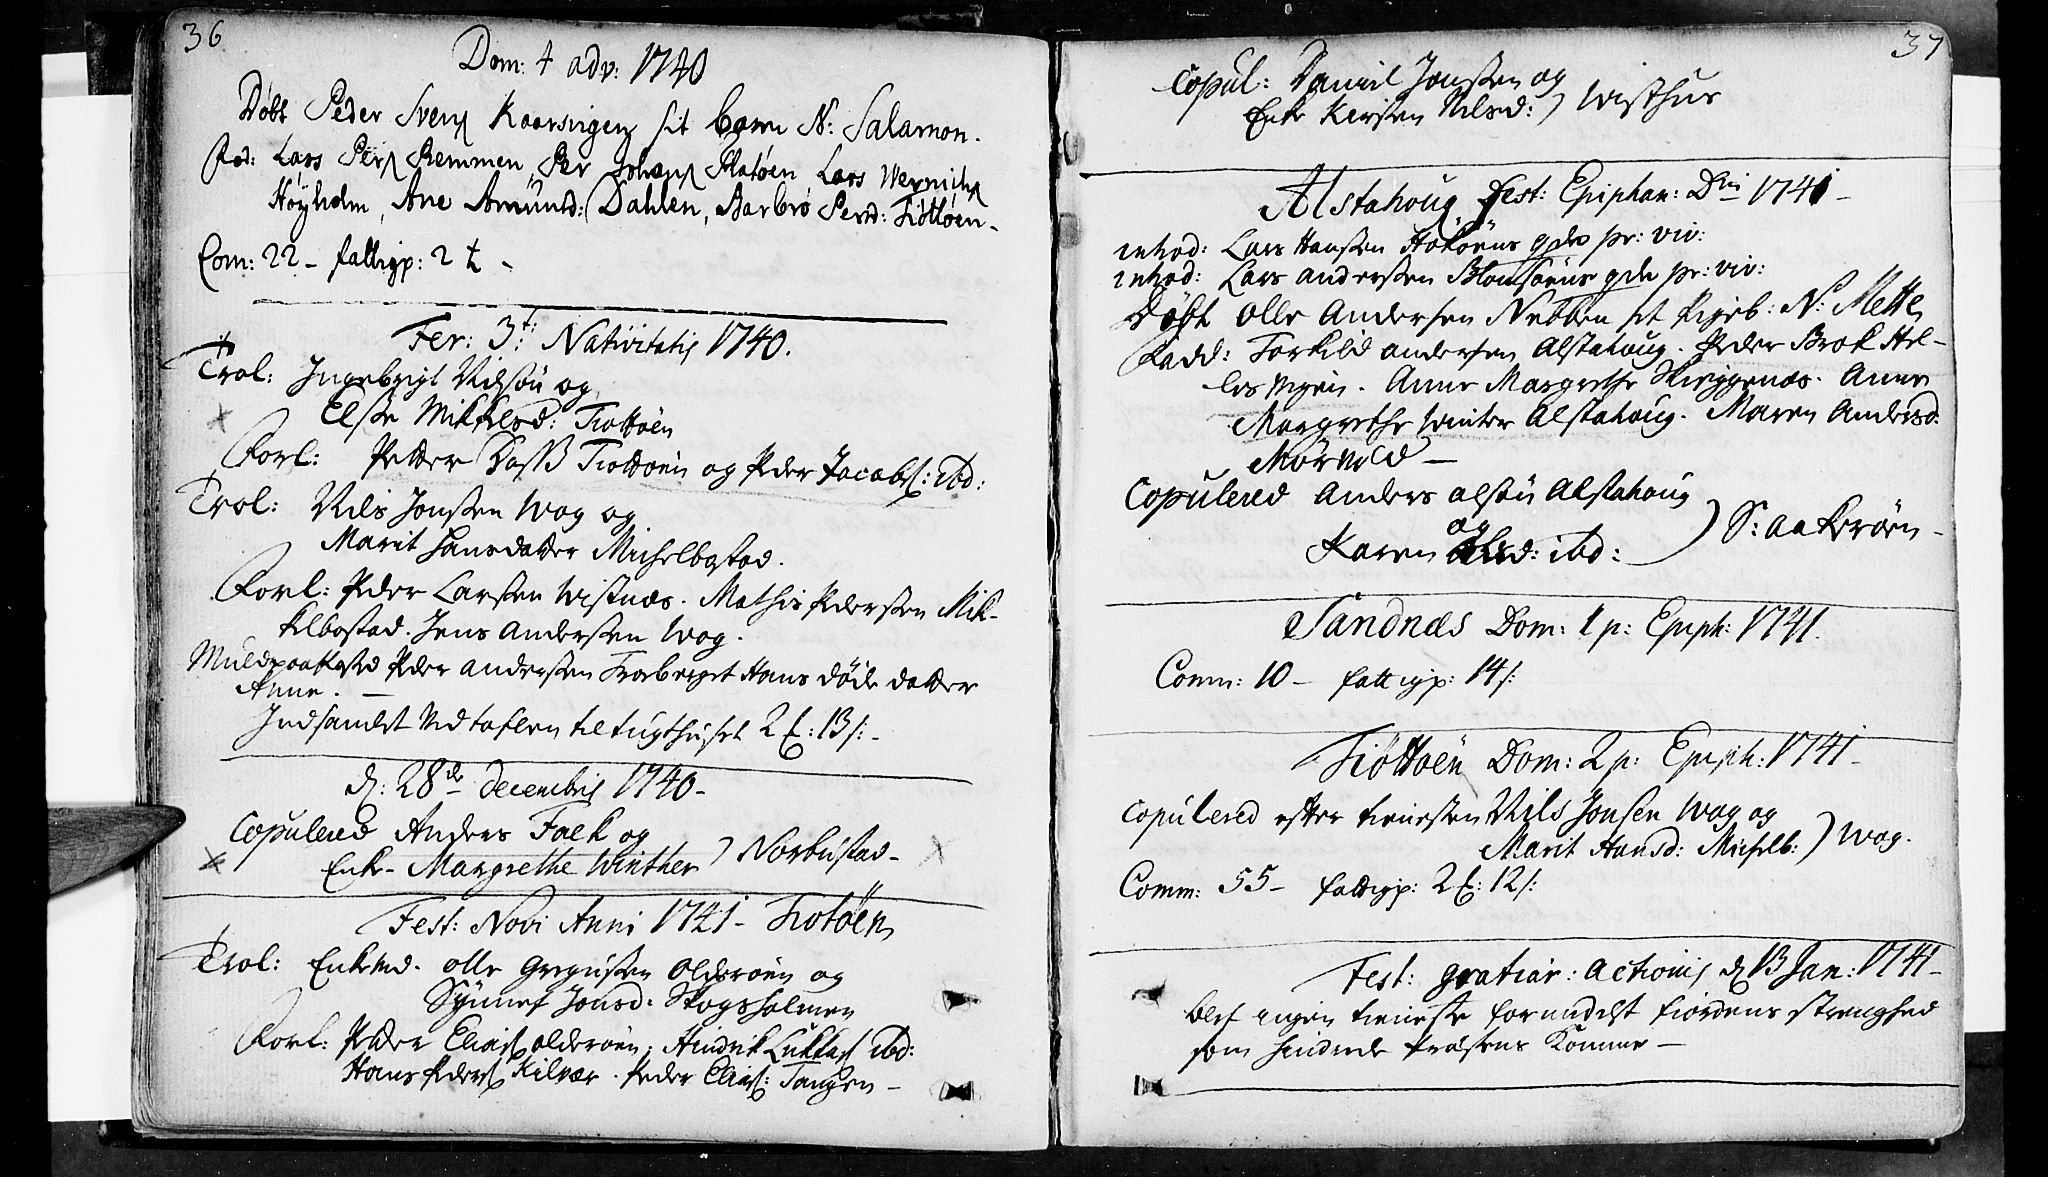 36
Dom: 4 adv: 1740
Døbt Peder Svens Kaarsvigen sit barn N: Salamon.
Fad: Lars Pers Remmen, Per Johans Flatøen Lars Wernichs
Høyholm, Ane Amunds: Dahlen, Barbro Persd: Tiøttøen.
Com: 22 - fattigp: 2
Fer: 3t: Nativitatis 1740.
Trol: Ingebrigt Nilsøn og
Elsße Mikkelsd: Tiøttøen
Forl: Petter Dass Tiøttøen og Peder Jacobs: ibd:
Trol: Nils Jonssen Wog og
Marit Hansdatter Michelbostad.
Forl: Peder Larssen Wistnæs. Mathis Pedersen Mik-
kelbostad. Jens Anderssen Wog.
Muldpaakast Peder Anderssen hans døde datter
Anne. -
Indsamlet ved taflen til tugthuset 2 : 13 /: -
d: 28de decembris 1740 -
Copulered Anders Falk og
Enke Margrethe Winther ) Norbustad -
Fest: Novi Anni 1741 - Tiøtøen
Trol: Enkemd. Olle Gregussen Olderøen og
Synnef Jonsd: Skogsholmen
Forl: Peder Elias Olderøen, Hindrik Lukkas ibd:
Hans Peders Kilvær. Peder Elias: Tangen -
37
Copul: Daniel Jonssen og
Enke Kirsten Nilsd: ) Wisthus
Alstahoug Fest: Epiphan: Dni 1741 -
introd: Lars Hanssen Haköens qde pr: viv:
introd: Lars Anderssen Blomsöens qde pr: viv:
Døbt Olle Andersen Nebben sit Pigeb: N: Mette
Fadd: Torkild Andersen Alstahoug. Peder Brok Hel-
. Anne Margrethe . Anne
Margrethe Winter Alstahoug. Maren Andersd.
-
Copulered Anders Alstahoug
og
Karen Olsd: ibd: ) S: Aakerøen -
Sandnæs Dom: 1 p: Epiph: 1741.
Comm: 10 - fattigp: 14 /:
Tiøttøen Dom: 2 p: Epiph: 1741 -
Copulered efter tienesten Nils Jonsen Wog og
Marit Hansd: Michelb: ) Wog.
Comm: 55 - fattigp: 2 : 12 /:
Fest: gratiar: actionis d 13 Jan: 1741 -
blef ingen tieneste formedelst fiordens strenghed
som hindrede Præstens komme -